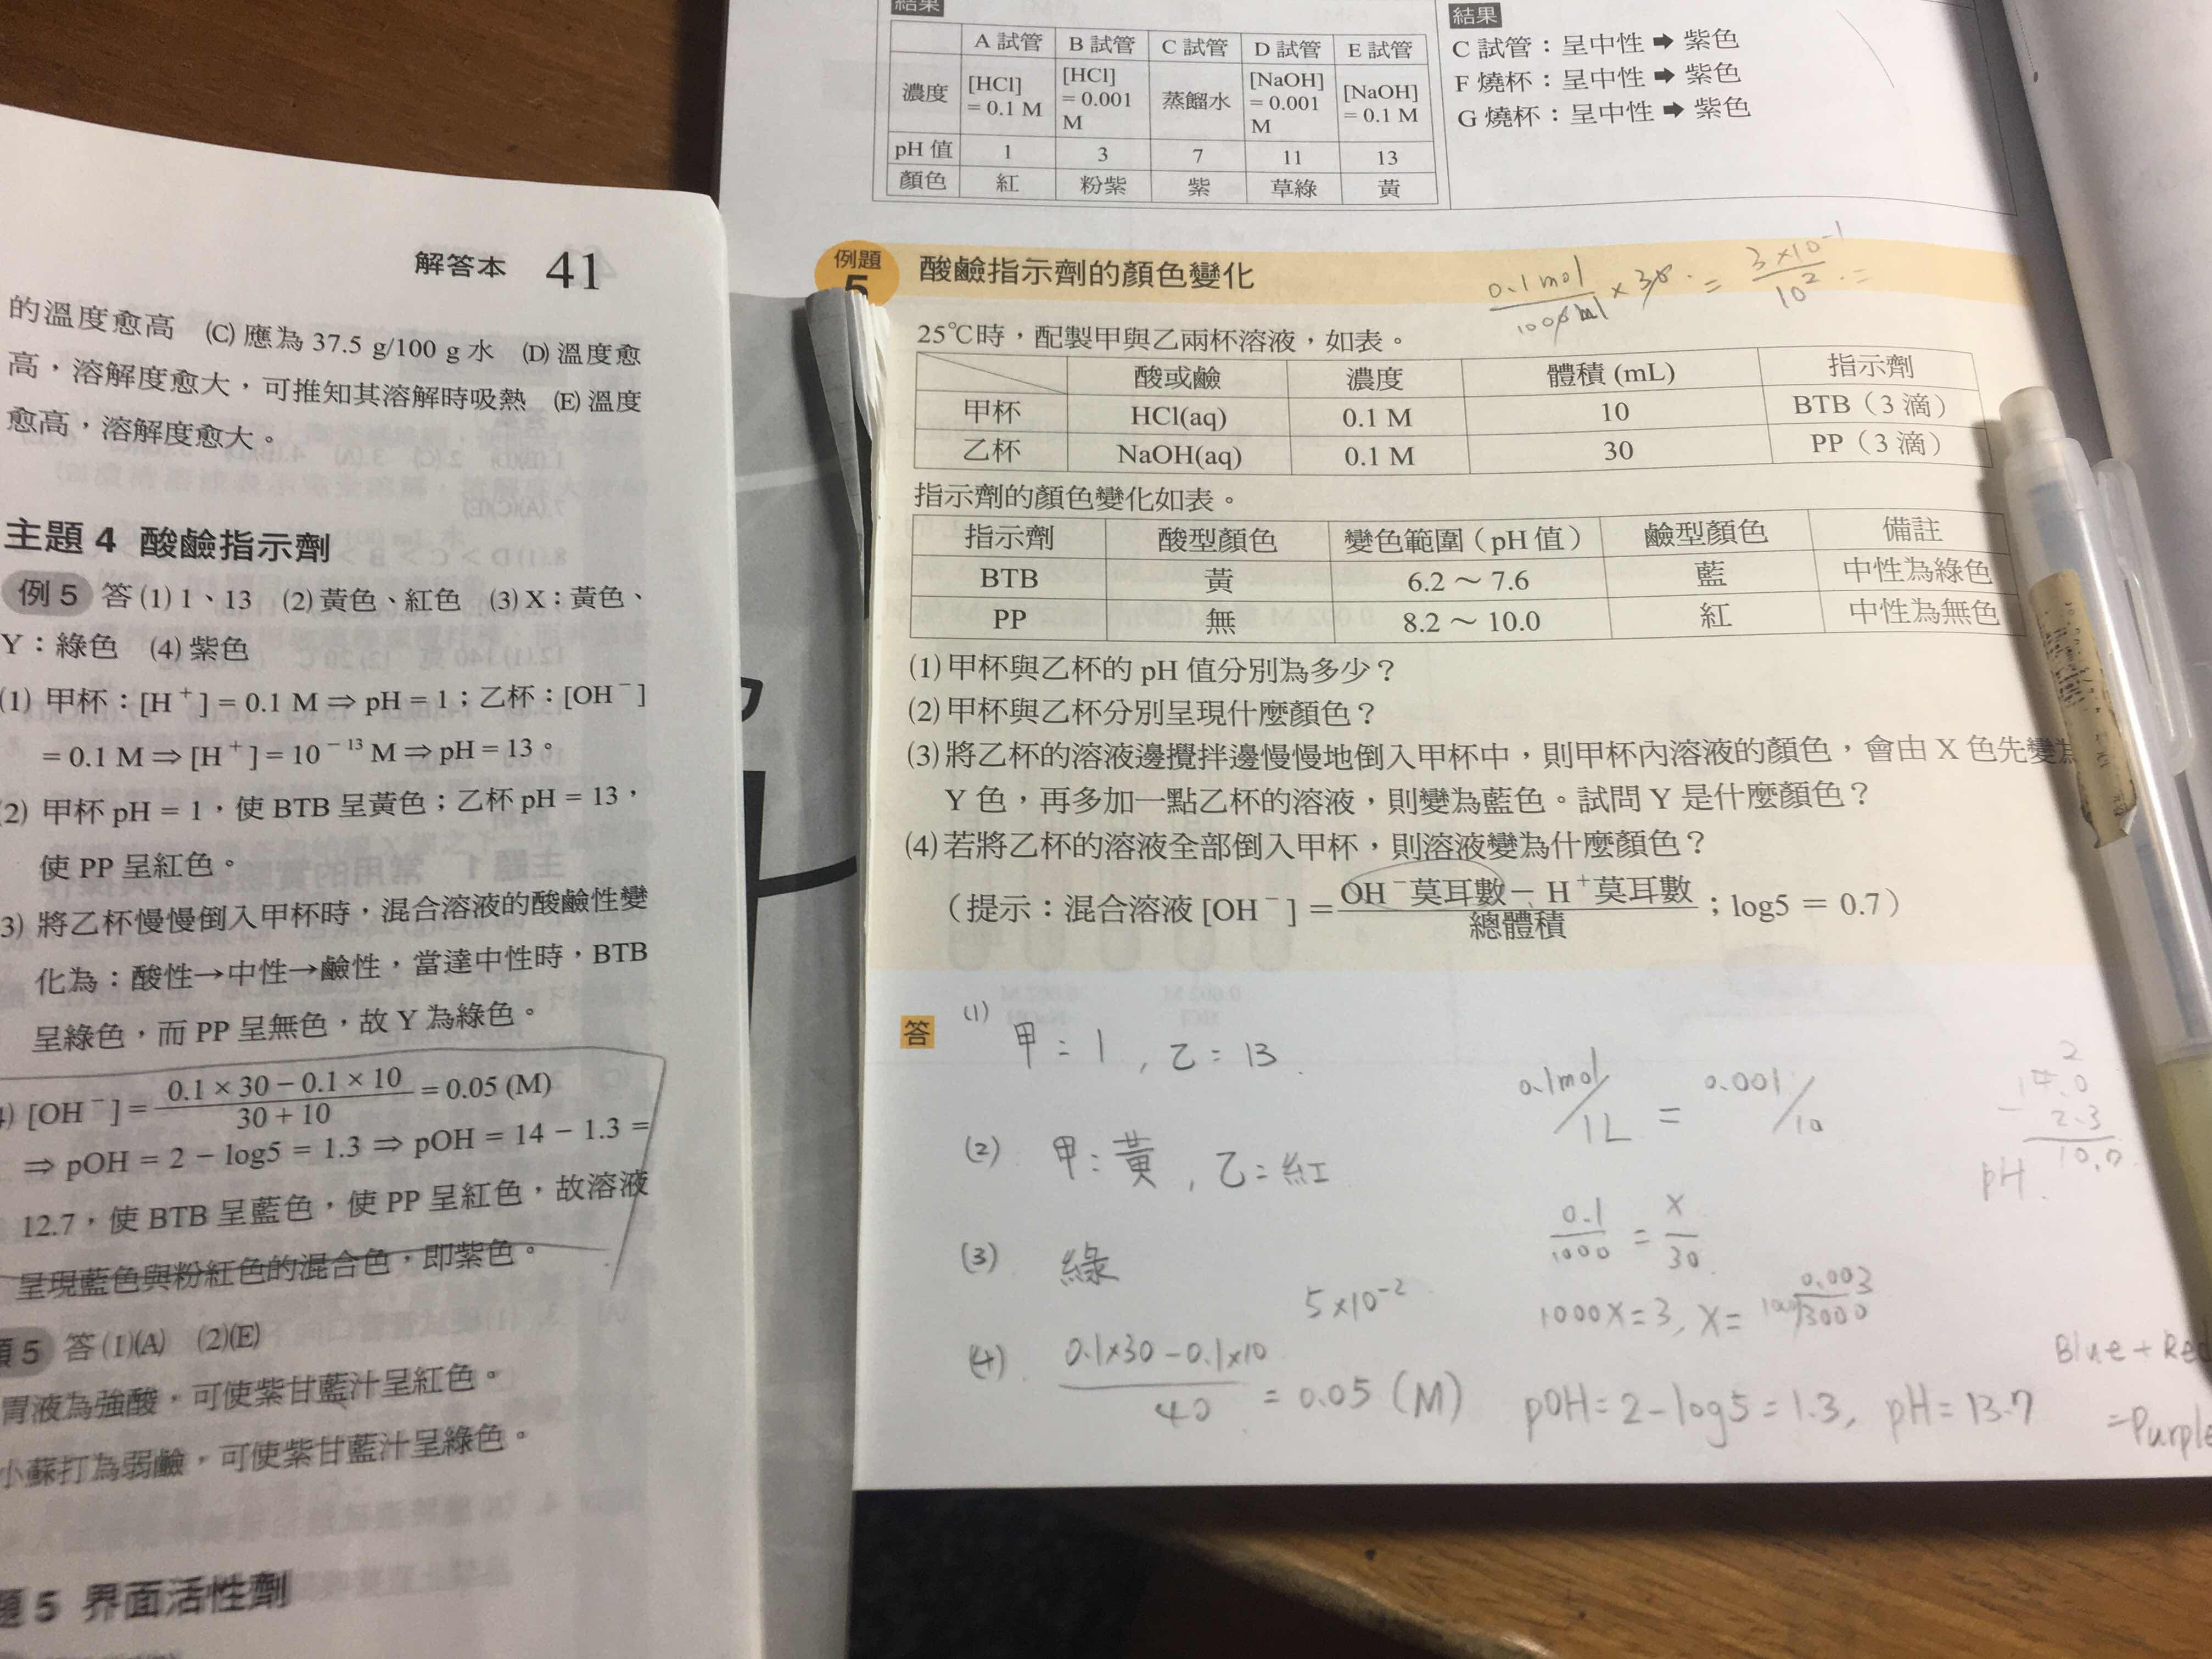 解答本 41
的溫度愈高 (C) 應為 37.5 g/100 g 水 (D) 溫度愈
高，溶解度愈大，可推知其溶解時吸熱 (E) 溫度
愈高，溶解度愈大。
主題 4 酸鹼指示劑
例 5 答 (1) 1、13 (2) 黃色、紅色 (3) X：黃色、
Y：綠色 (4) 紫色
(1) 甲杯：[H⁺] = 0.1 M ⇒ pH = 1；乙杯：[OH⁻]
= 0.1 M ⇒ [H⁺] = 10⁻¹³ M ⇒ pH = 13。
(2) 甲杯 pH = 1，使 BTB 呈黃色；乙杯 pH = 13，
使 PP 呈紅色。
3) 將乙杯慢慢倒入甲杯時，混合溶液的酸鹼性變
化為：酸性→中性→鹼性，當達中性時，BTB
呈綠色，而 PP 呈無色，故 Y 為綠色。
4) [OH⁻] = (0.1 × 30 − 0.1 × 10)/(30 + 10) = 0.05 (M)
⇒ pOH = 2 − log5 = 1.3 ⇒ pOH = 14 − 1.3 =
12.7，使 BTB 呈藍色，使 PP 呈紅色，故溶液
呈現藍色與粉紅色的混合色，即紫色。
題 5 答 (1)(A) (2)(E)
胃液為強酸，可使紫甘藍汁呈紅色。
小蘇打為弱鹼，可使紫甘藍汁呈綠色。
題 5 界面活性劑
結果
A 試管 B 試管 C 試管 D 試管 E 試管
濃度 [HCl] = 0.1 M [HCl] = 0.001 M 蒸餾水 [NaOH] = 0.001 M [NaOH] = 0.1 M
pH 值 1 3 7 11 13
顏色 紅 粉紫 紫 草綠 黃
結果
C 試管：呈中性 ➡ 紫色
F 燒杯：呈中性 ➡ 紫色
G 燒杯：呈中性 ➡ 紫色
例題 5 酸鹼指示劑的顏色變化
0.1 mol/1000 ml × 30 = 3×10⁻¹/10² =
25℃時，配製甲與乙兩杯溶液，如表。
酸或鹼 濃度 體積 (mL) 指示劑
甲杯 HCl(aq) 0.1 M 10 BTB（3 滴）
乙杯 NaOH(aq) 0.1 M 30 PP（3 滴）
指示劑的顏色變化如表。
指示劑 酸型顏色 變色範圍（pH 值） 鹼型顏色 備註
BTB 黃 6.2 ～ 7.6 藍 中性為綠色
PP 無 8.2 ～ 10.0 紅 中性為無色
(1) 甲杯與乙杯的 pH 值分別為多少？
(2) 甲杯與乙杯分別呈現什麼顏色？
(3) 將乙杯的溶液邊攪拌邊慢慢地倒入甲杯中，則甲杯內溶液的顏色，會由 X 色先變為
Y 色，再多加一點乙杯的溶液，則變為藍色。試問 Y 是什麼顏色？
(4) 若將乙杯的溶液全部倒入甲杯，則溶液變為什麼顏色？
（提示：混合溶液 [OH⁻] = (OH⁻莫耳數 − H⁺莫耳數)/總體積；log5 = 0.7）
答 (1) 甲：1，乙：13
(2) 甲：黃，乙：紅
(3) 綠
(4) (0.1×30 − 0.1×10)/40 = 0.05 (M) pOH = 2 − log5 = 1.3, pH = 13.7
5×10⁻²
0.1mol/1L = 0.001/10
0.1/1000 = x/30
1000X = 3, X = 0.003
3000
2
14.0
− 2.3
pH 10.7
Blue + Red
= Purple